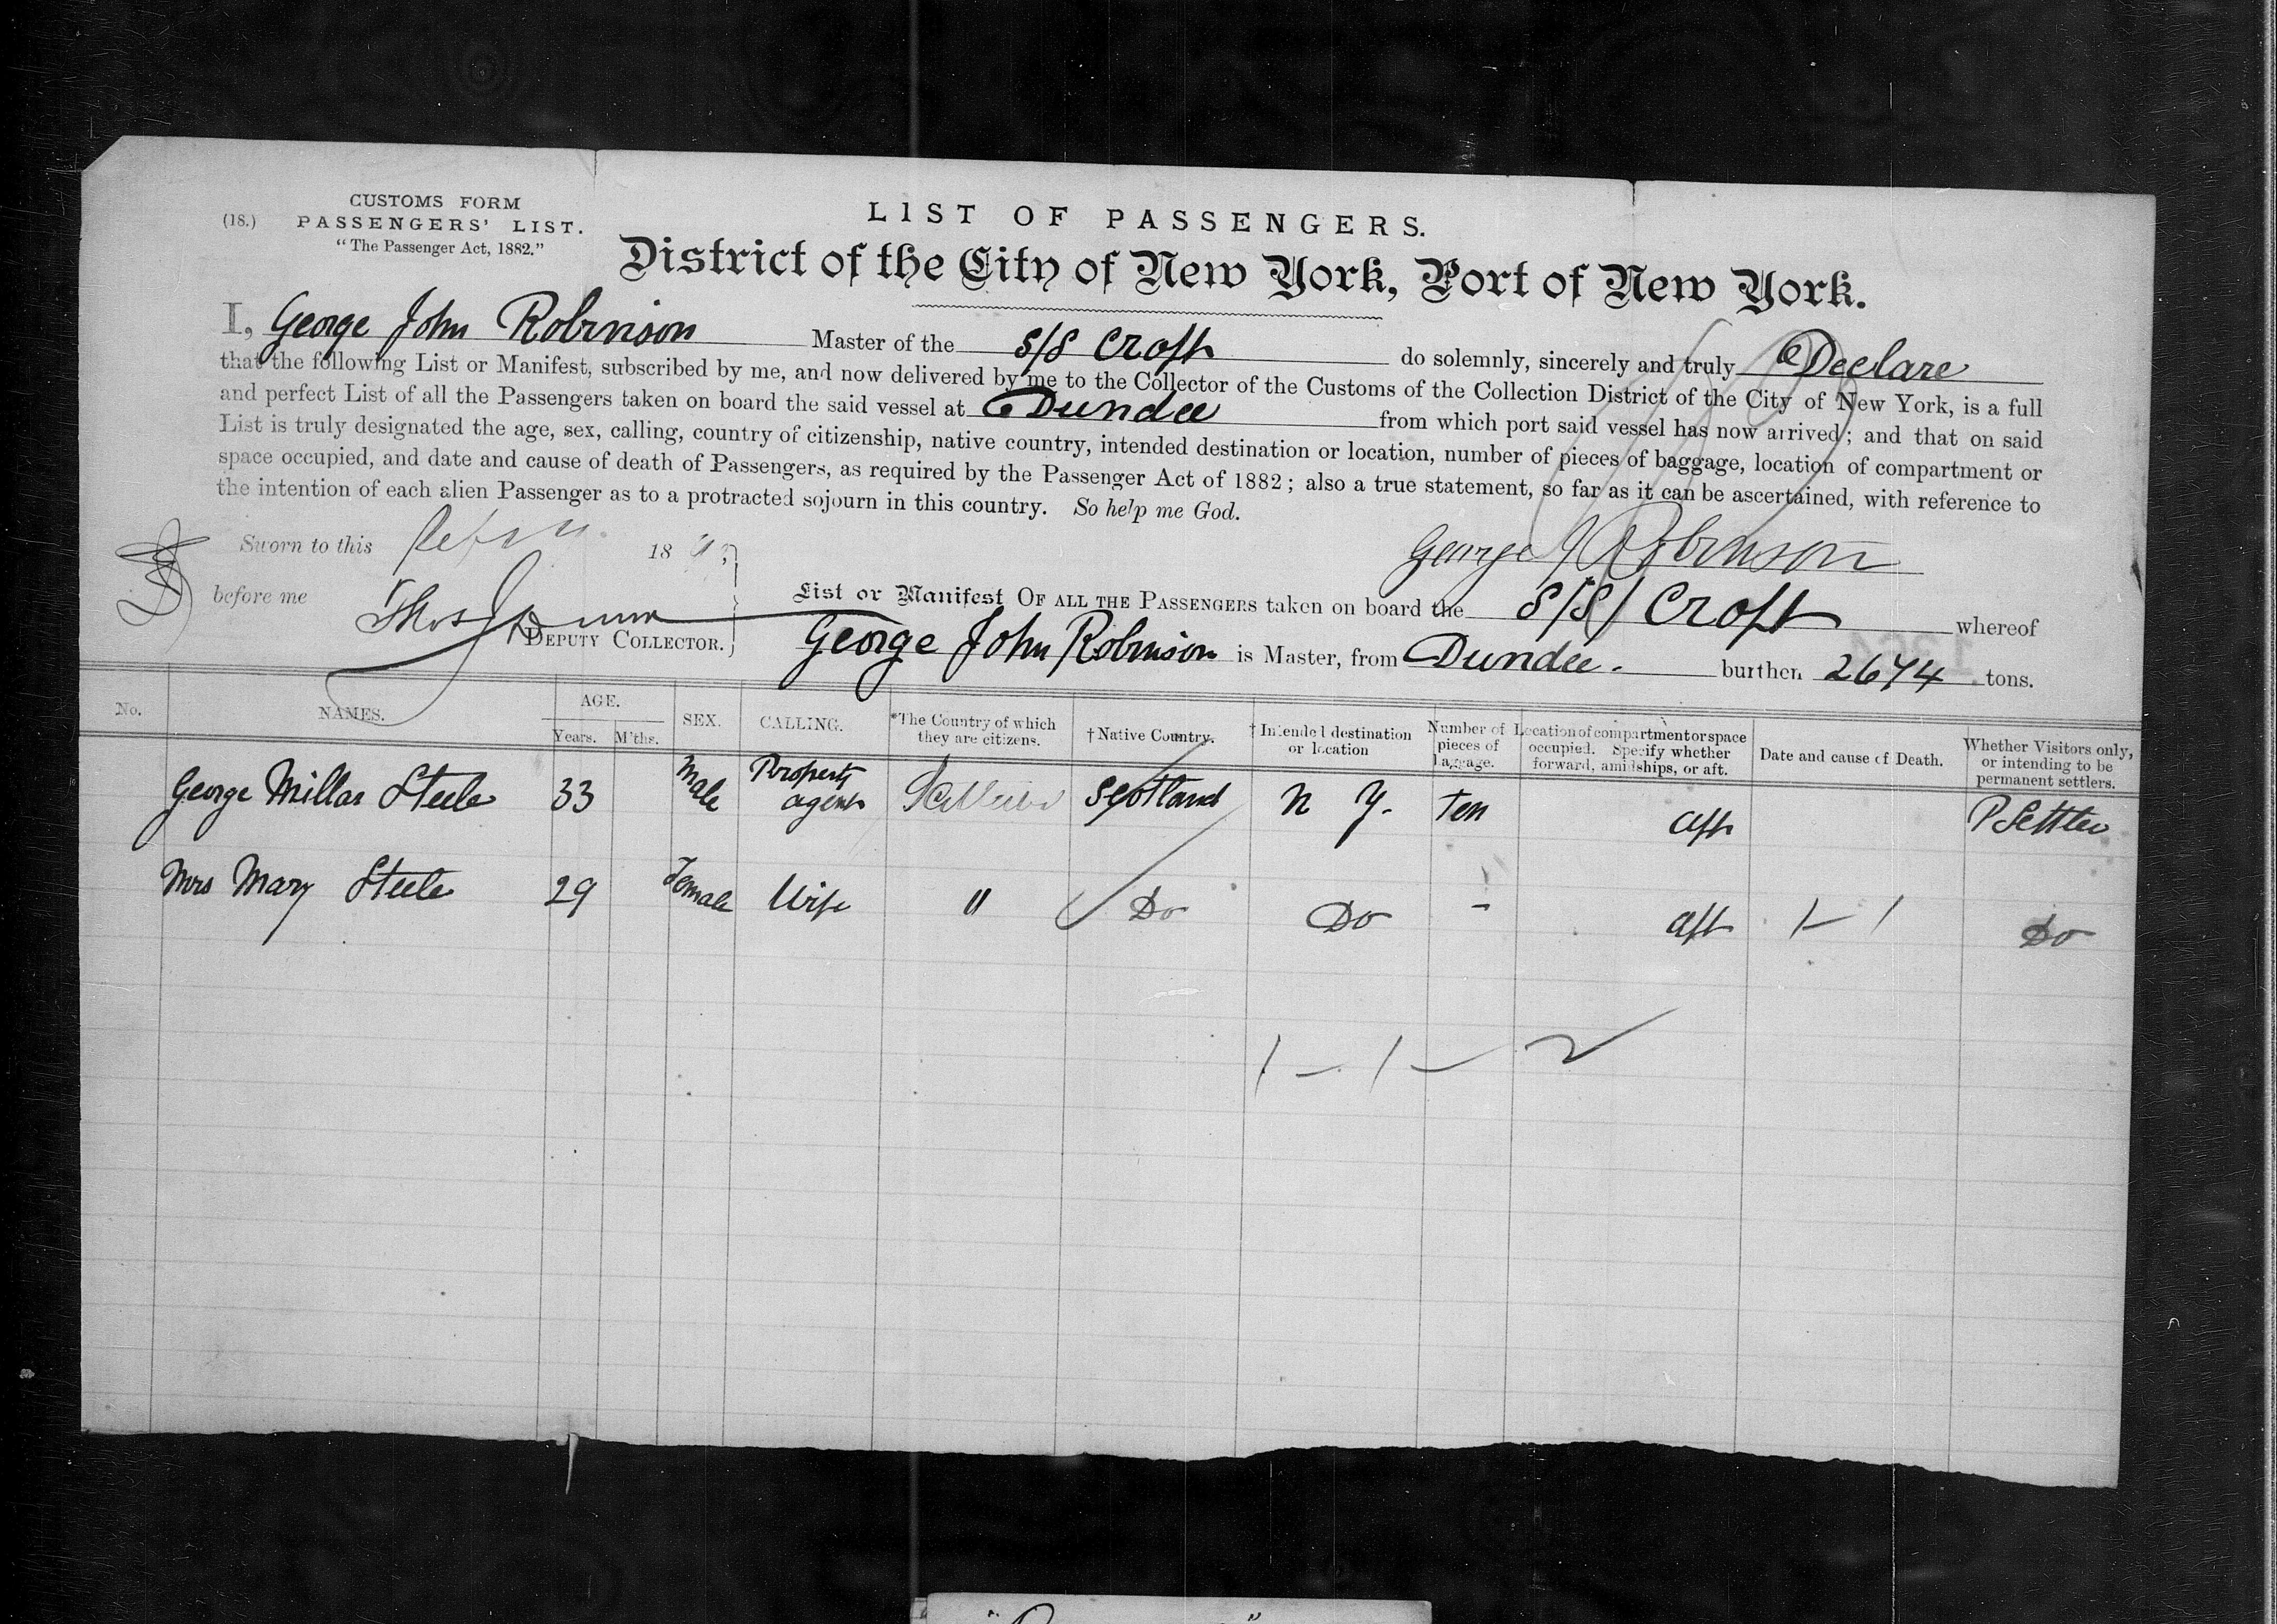 (18.)
CUSTOMS FORM
PASSENGERS' LIST.
"The Passenger Act, 1882."
LIST OF PASSENGERS.
District of the City of New York, Port of New York.
I, George John Robinson Master of the S/S Croft do solemnly, sincerely and truly Declare
that the following List or Manifest, subscribed by me, and now delivered by me to the Collector of the Customs of the Collection District of the City of New York, is a full
and perfect List of all the Passengers taken on board the said vessel at Dundee from which port said vessel has now arrived; and that on said
List is truly designated the age, sex, calling, country of citizenship, native country, intended destination or location, number of pieces of baggage, location of compartment or
space occupied, and date and cause of death of Passengers, as required by the Passenger Act of 1882; also a true statement, so far as it can be ascertained, with reference to
the intention of each alien Passenger as to a protracted sojourn in this country. So help me God.
Sworn to this 18
George J Robinson
before me Thos
DEPUTY COLLECTOR.
List or Manifest OF ALL THE PASSENGERS taken on board the S/S/ Croft whereof
George John Robinson is Master, from Dundee. burthen 2674 tons.
No. NAMES. AGE. Years. M'ths. SEX. CALLING. *The Country of which they are citizens. † Native Country. † Intended destination or location Number of pieces of baggage. Location of compartment or space occupied. Specify whether forward, amidships, or aft. Date and cause of Death. Whether Visitors only, or intending to be permanent settlers.
George Millar Steele 33 Male Property agent Scotland N Y. Ten aft P Settler
Mrs Mary Steele 29 Female Wife " Do Do - aft 1 - 1 Do
1 - 1 - 2